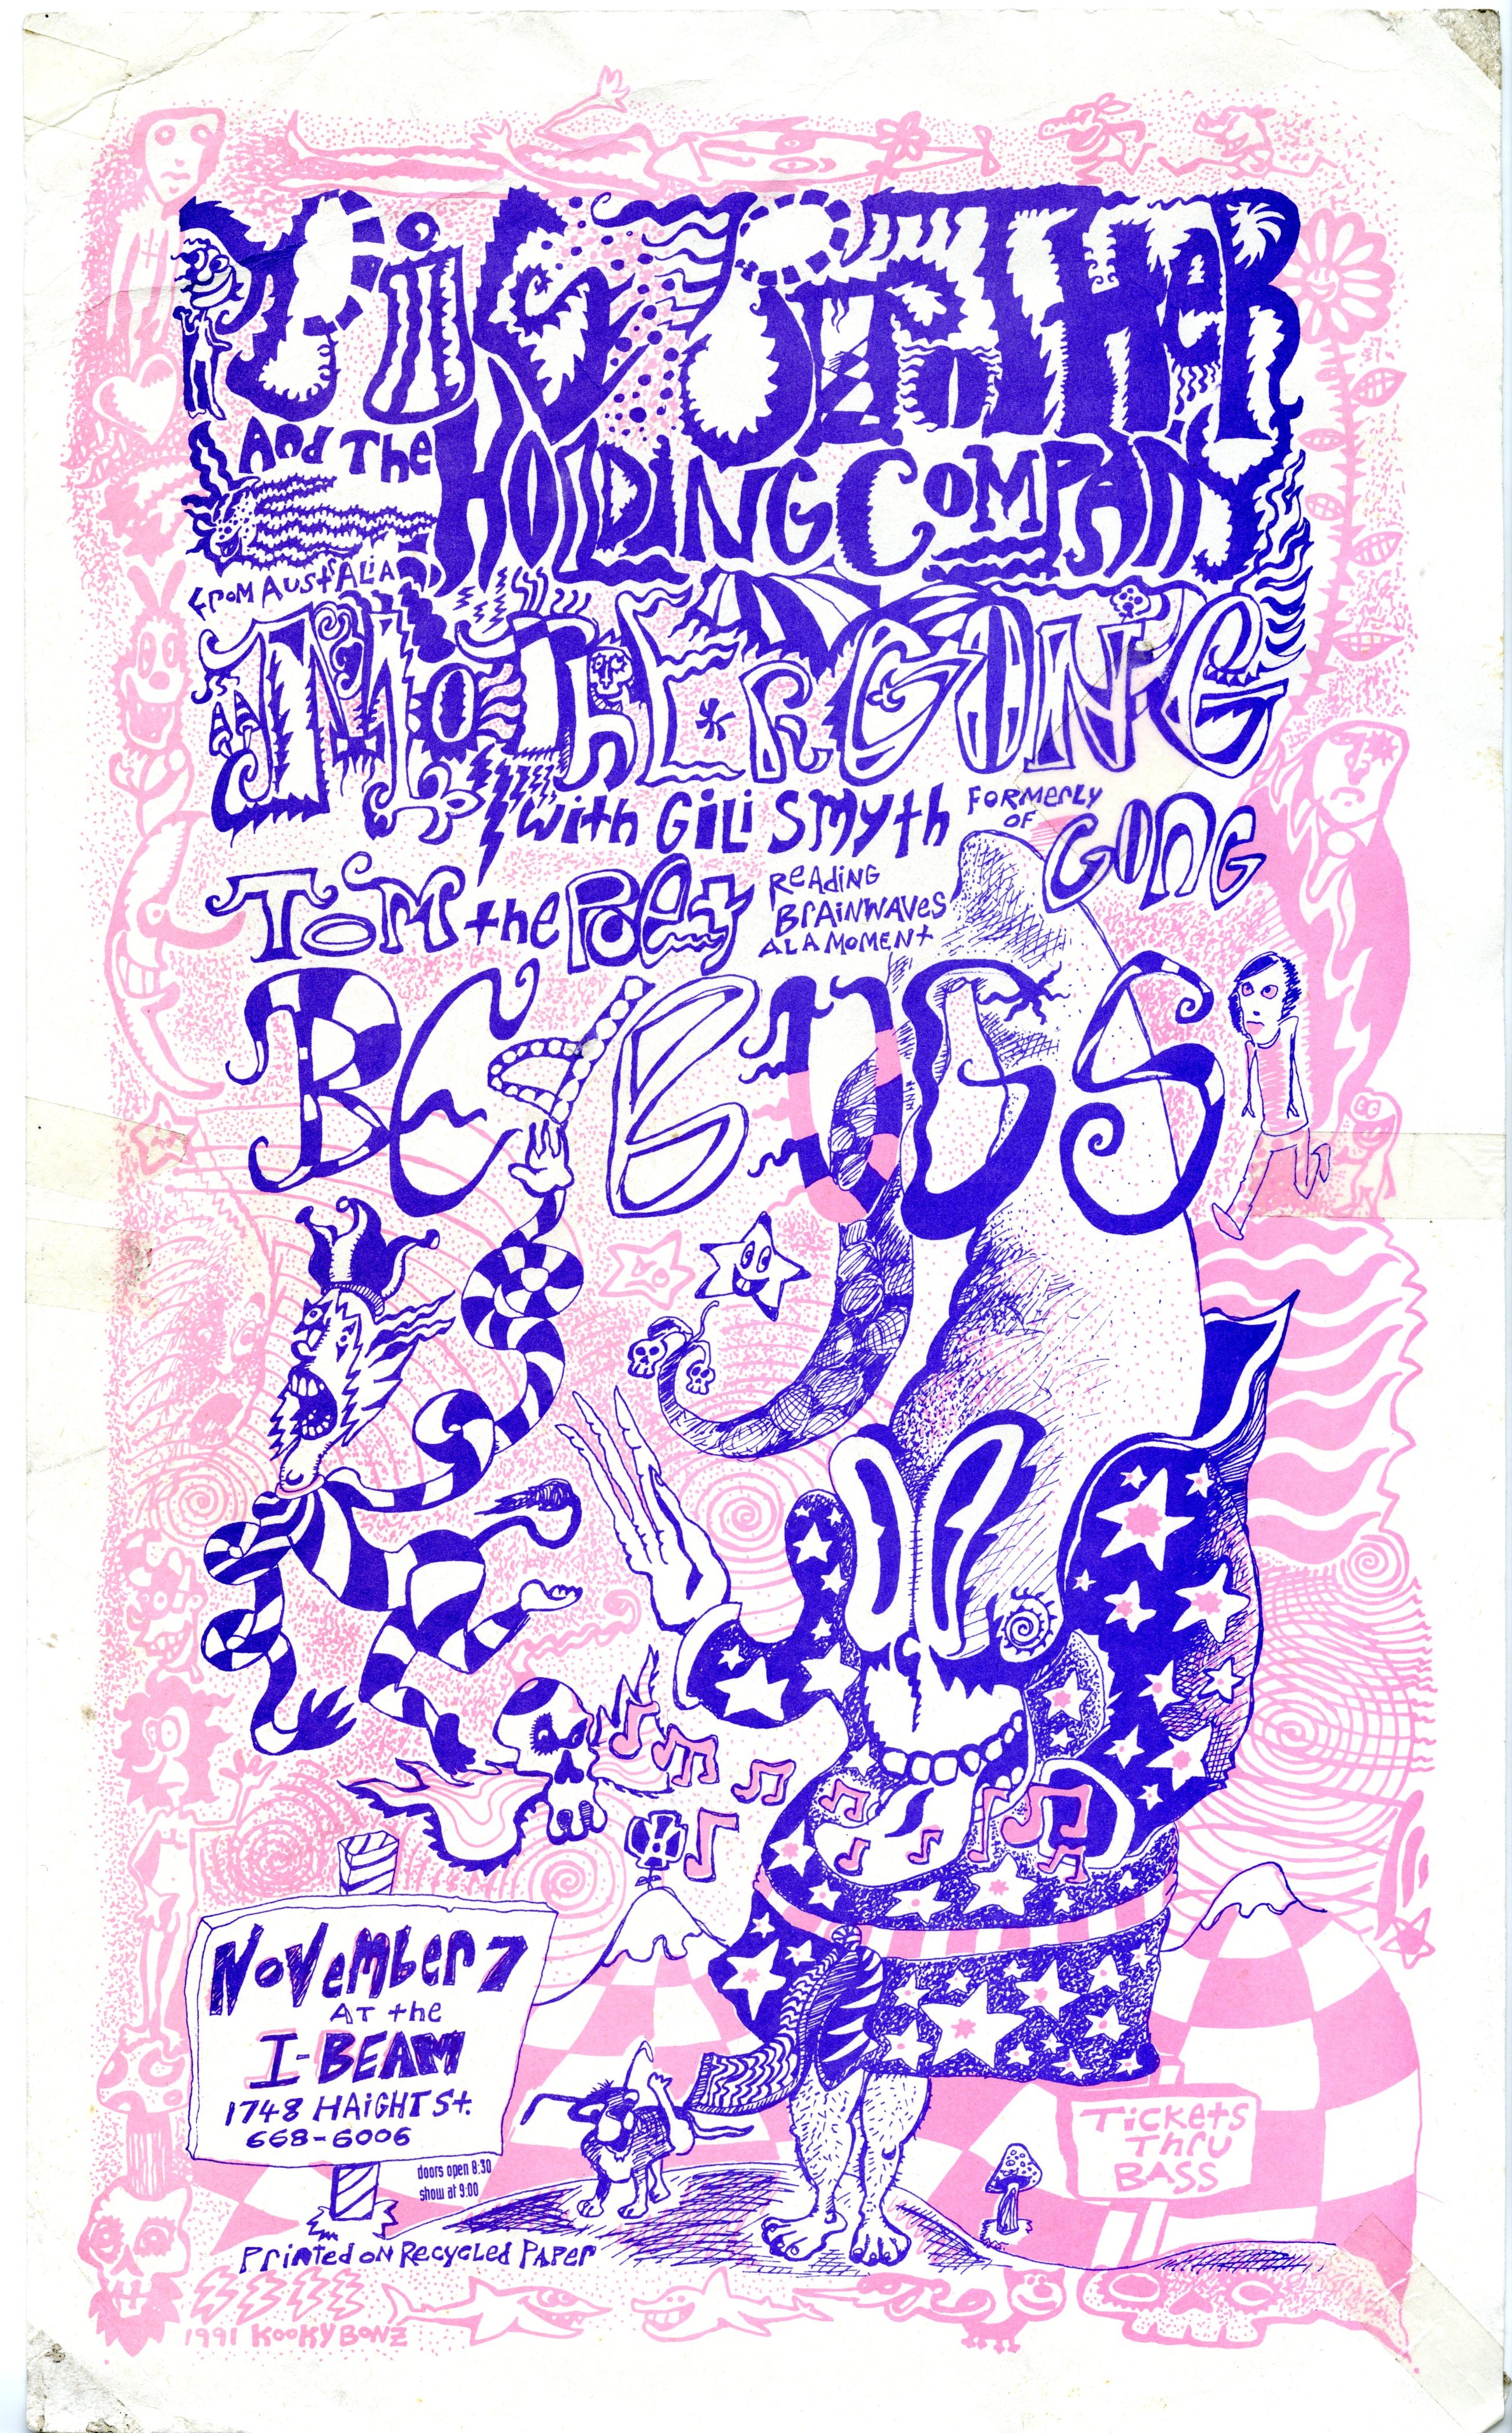 BiG BrOTHer
And The HOLDING COMPANY
From AustrALiA
MOThErGONG
with GiLi SMyth FORMERLY OF GONG
TOM the POet ReAding BrAiNWAVes ALA MOMENt
BEdBUGS
NOVember 7
AT the
I-BEAM
1748 HAiGHT St.
668-6006
doors open 8:30
show at 9:00
TiCKEtS
Thru
BASS
Printed oN Recycled PAPer
1991 KOOKYBONZ